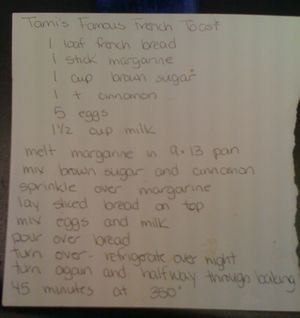 Tami's Famous French Toast
1 loaf french bread
1 stick margarine
1 cup brown sugar
1 t cinnamon
5 eggs
1 1/2 cup milk
melt margarine in 9x13 pan
mix brown sugar and cinnamon
sprinkle over margarine
lay sliced bread on top
mix eggs and milk
pour over bread
turn over- refrigerate over night
turn again and halfway through baking
45 minutes at 350°